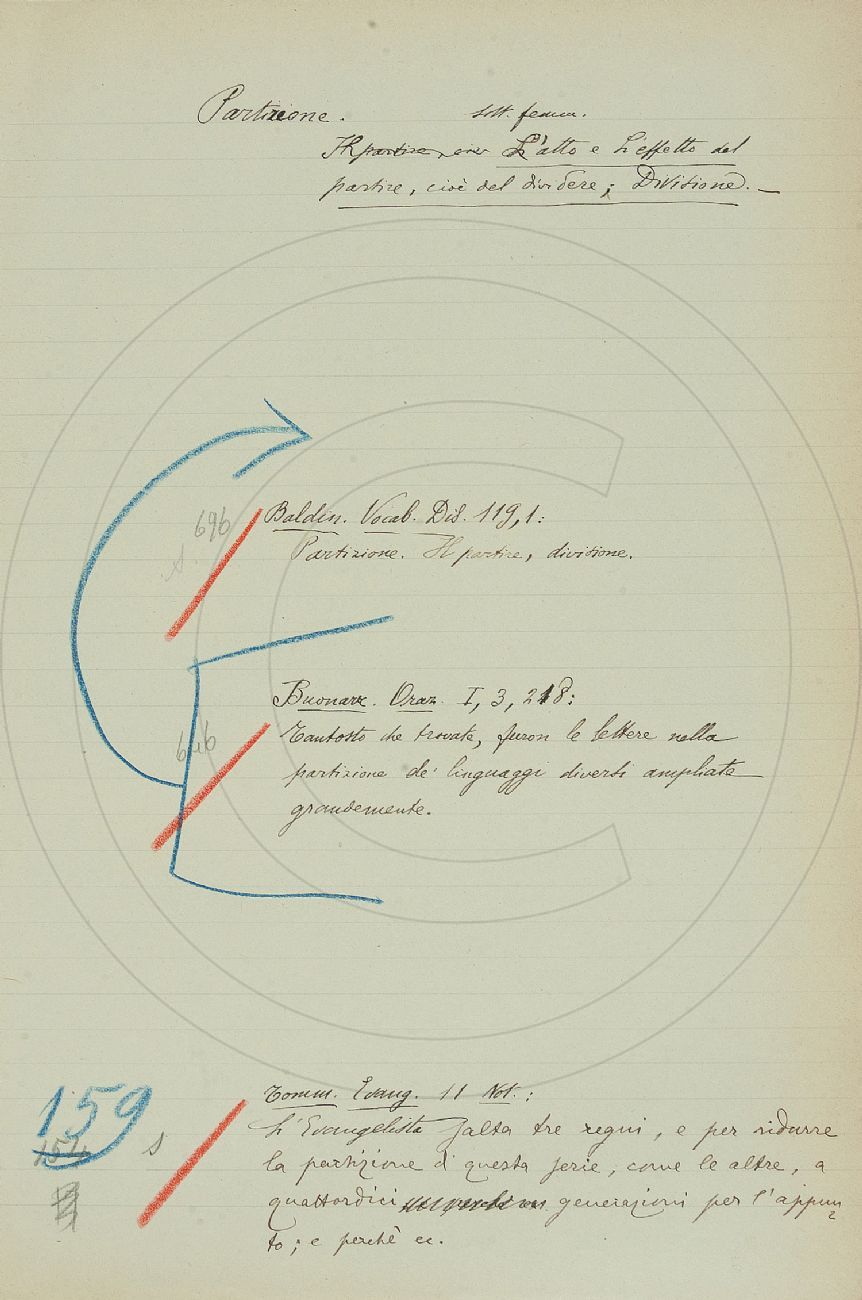 Partizione. Sost. femm.
Il partire, L'atto e L'effetto del
partire, cioè del dividere; Divisione. —
696
Baldin. Vocab. Dis. 119, 1:
Partizione. Il partire, divisione.
Buonarr. Oraz. I, 3, 218:
646
Tantosto che trovate, furon le lettere nella
partizione de' linguaggi diversi ampliate
grandemente.
159
Tomm. Evang. 11 Not.:
154 s
L'Evangelista salta tre regni, e per ridurre
la partizione di questa serie, come le altre, a
quattordici generazioni per l'appun
to; e perchè ec.